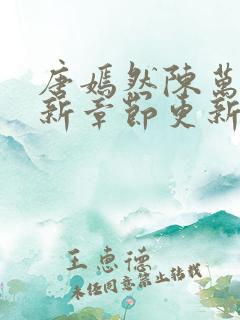 唐嫣然陳萬
新章節更新
王惠德
未任同意禁止转载